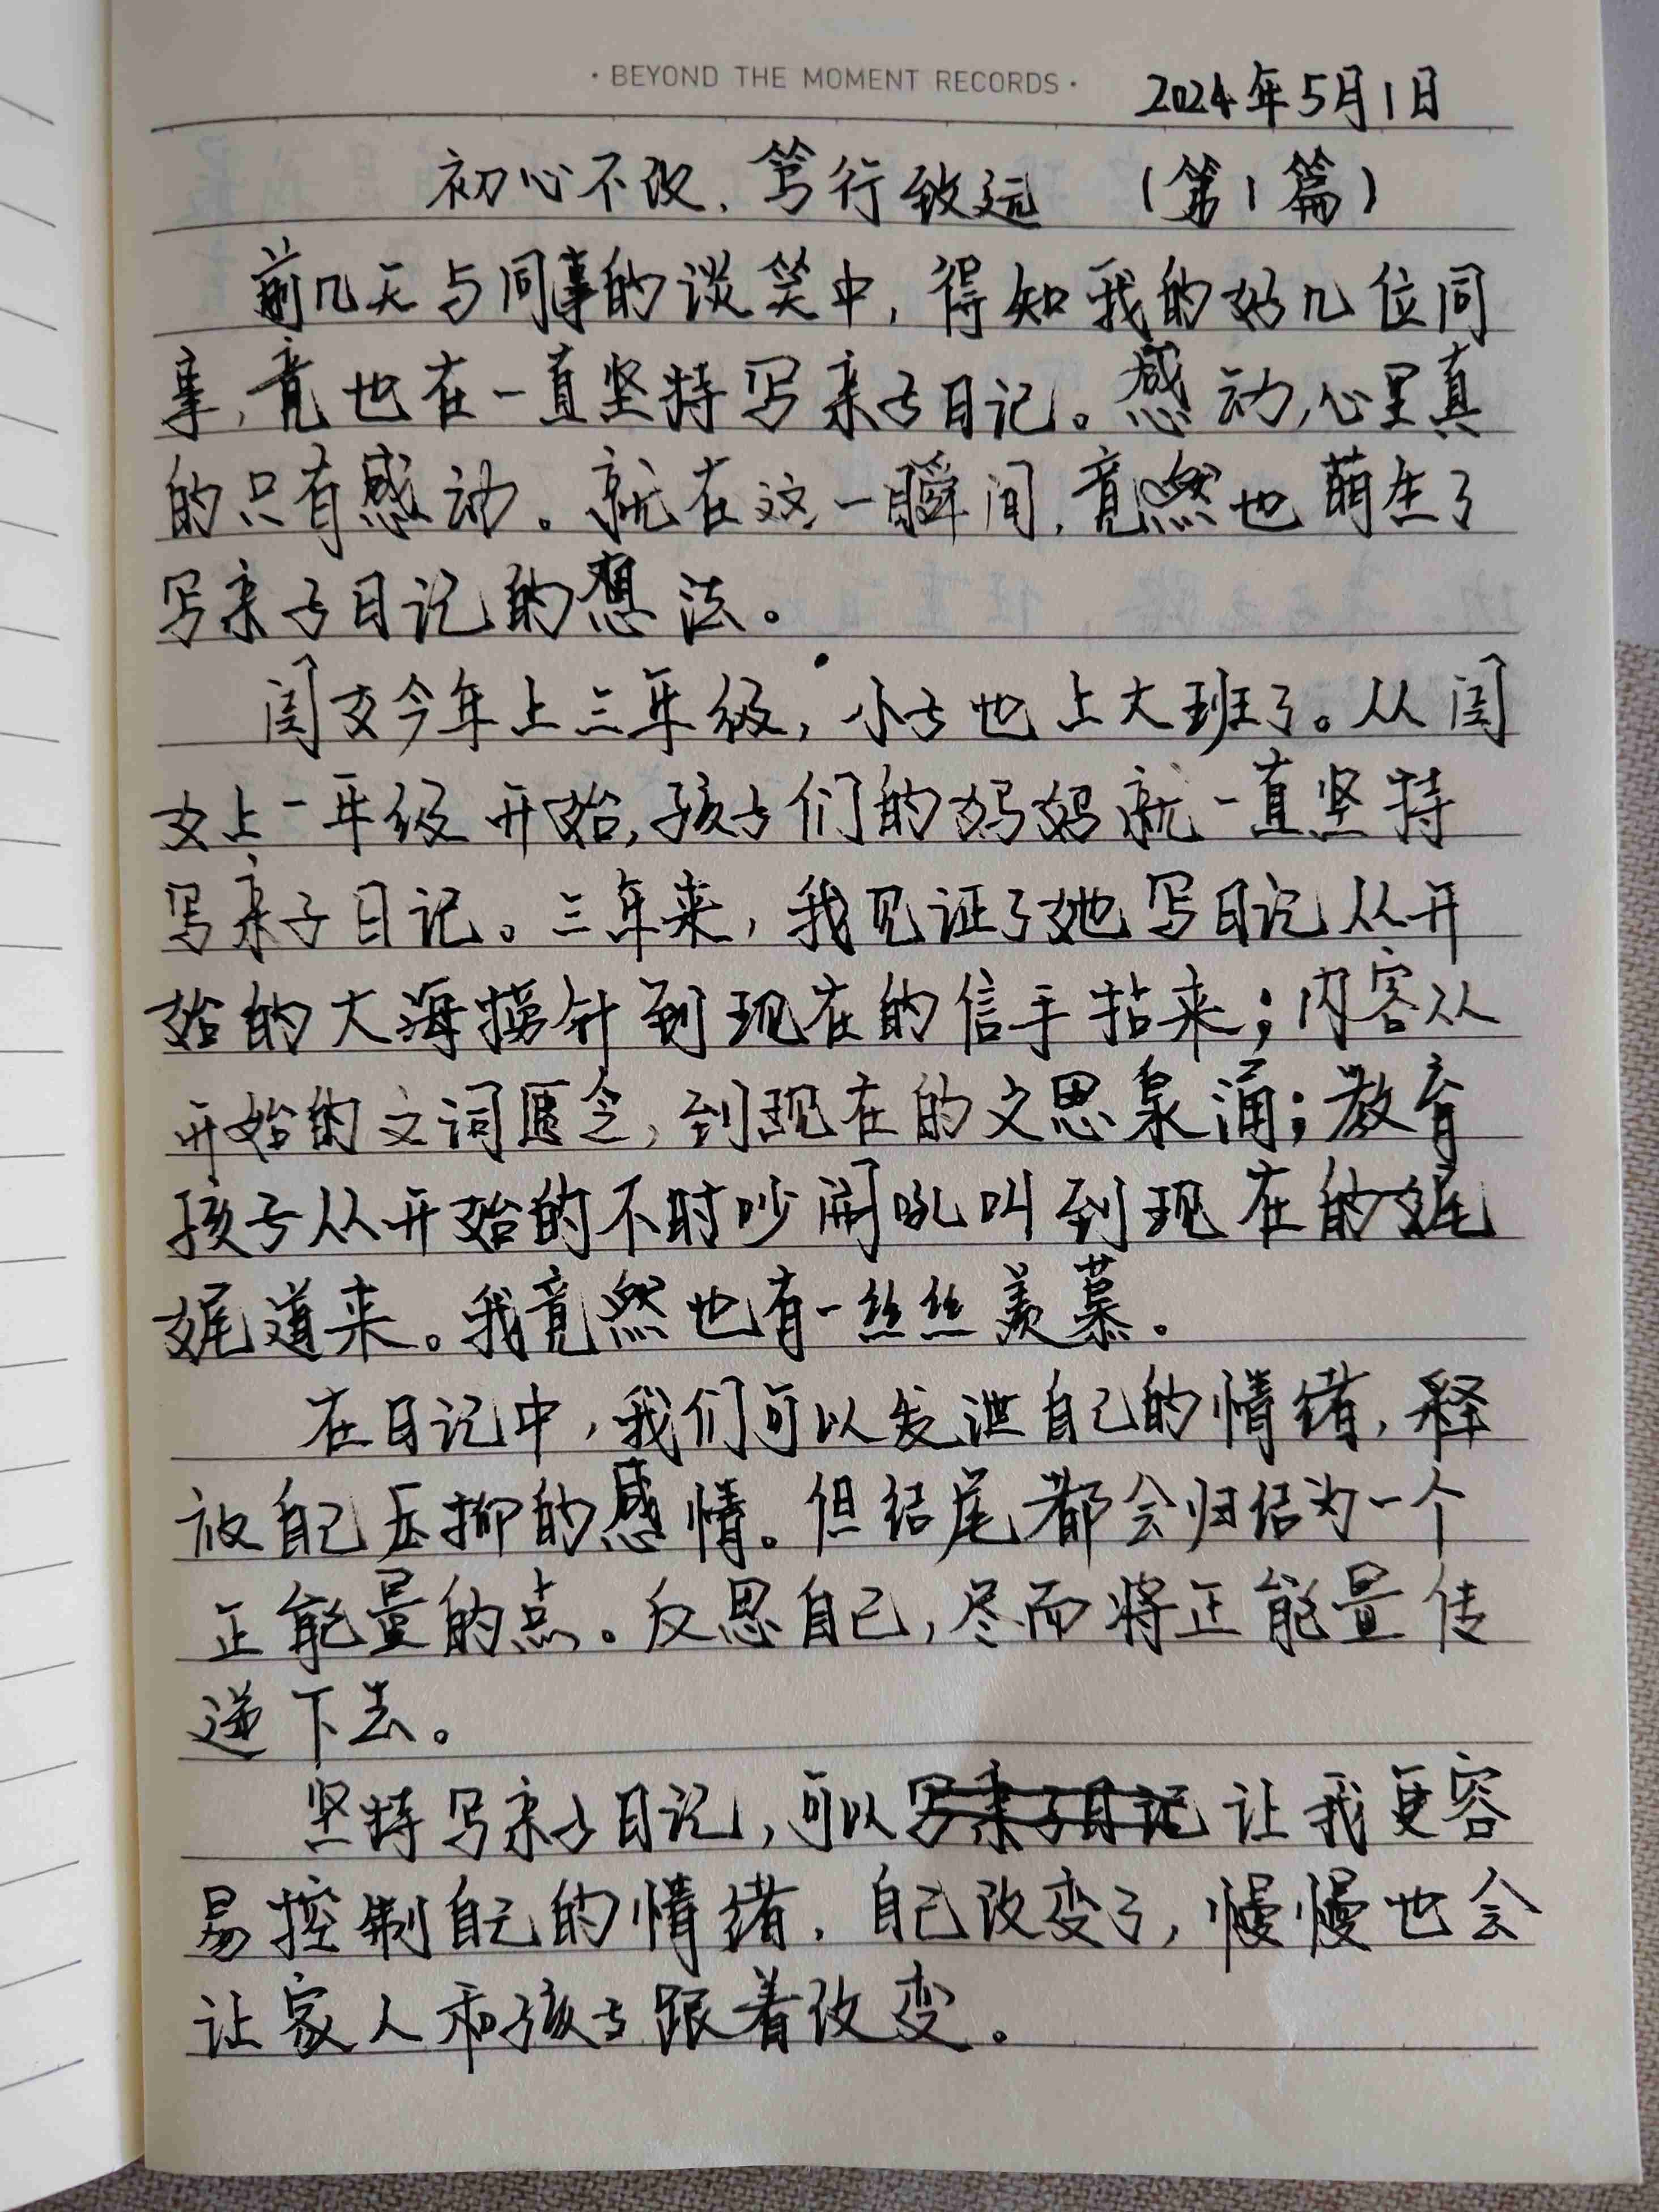 · BEYOND THE MOMENT RECORDS ·
2024年5月1日
初心不改、笃行致远 (第1篇)
前几天与同事的谈笑中,得知我的好几位同
事,竟也在一直坚持写亲子日记。感动,心里真
的只有感动。就在这一瞬间,竟然也萌生了
写亲子日记的想法。
闫文今年上三年级,小子也上大班了。从闫
文上一年级开始,孩子们的妈妈就一直坚持
写亲子日记。三年来,我见证了她写日记从开
始的大海捞针到现在的信手拈来;内容从
开始的文词匮乏,到现在的文思泉涌;教育
孩子从开始的不时吵闹吼叫到现在的娓
娓道来。我竟然也有一丝丝羡慕。
在日记中,我们可以发泄自己的情绪,释
放自己压抑的感情。但结尾都会归结为一个
正能量的点。反思自己,尽而将正能量传
递下去。
坚持写亲子日记,可以写亲子日记让我更容
易控制自己的情绪,自己改变了,慢慢也会
让家人和孩子跟着改变。